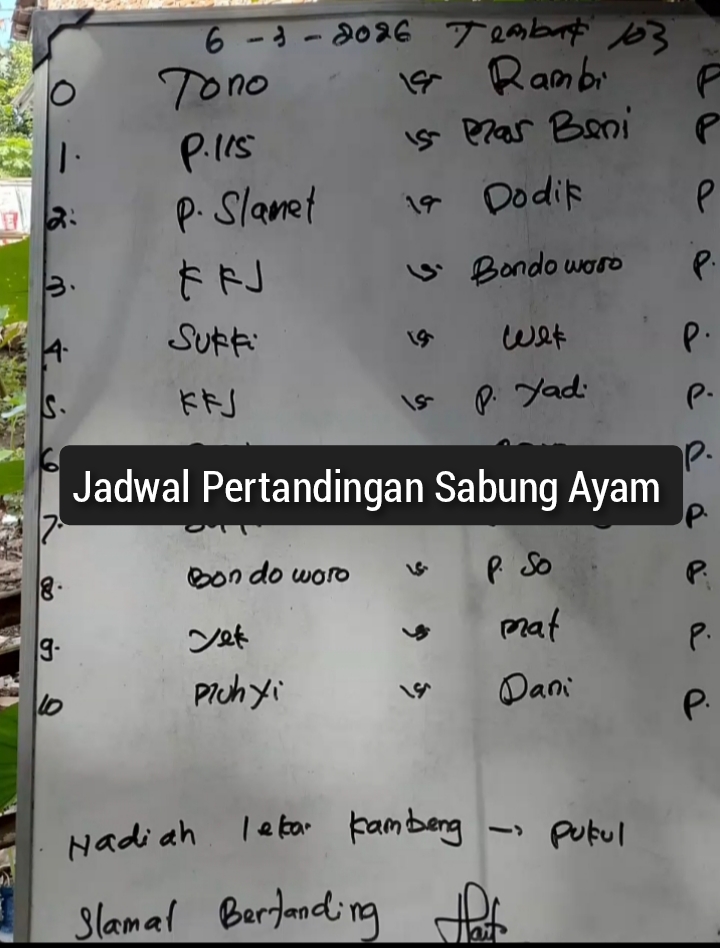 6 - 3 - 2026 Tembak 103
0 Tono vs Rambi P
1. P. IIS vs Mas Beni P
2. P. Slamet vs Dodik P
3. KKJ vs Bondowoso P.
4. Sukki vs Wek P.
5. KKJ vs P. Yadi P.
6 P.
Jadwal Pertandingan Sabung Ayam
7. P.
8. Bondowoso vs P. So P.
9. Yek vs Mat P.
10 Muhyi vs Dani P.
Hadiah lekar kambeng → pukul
Slamat Bertanding